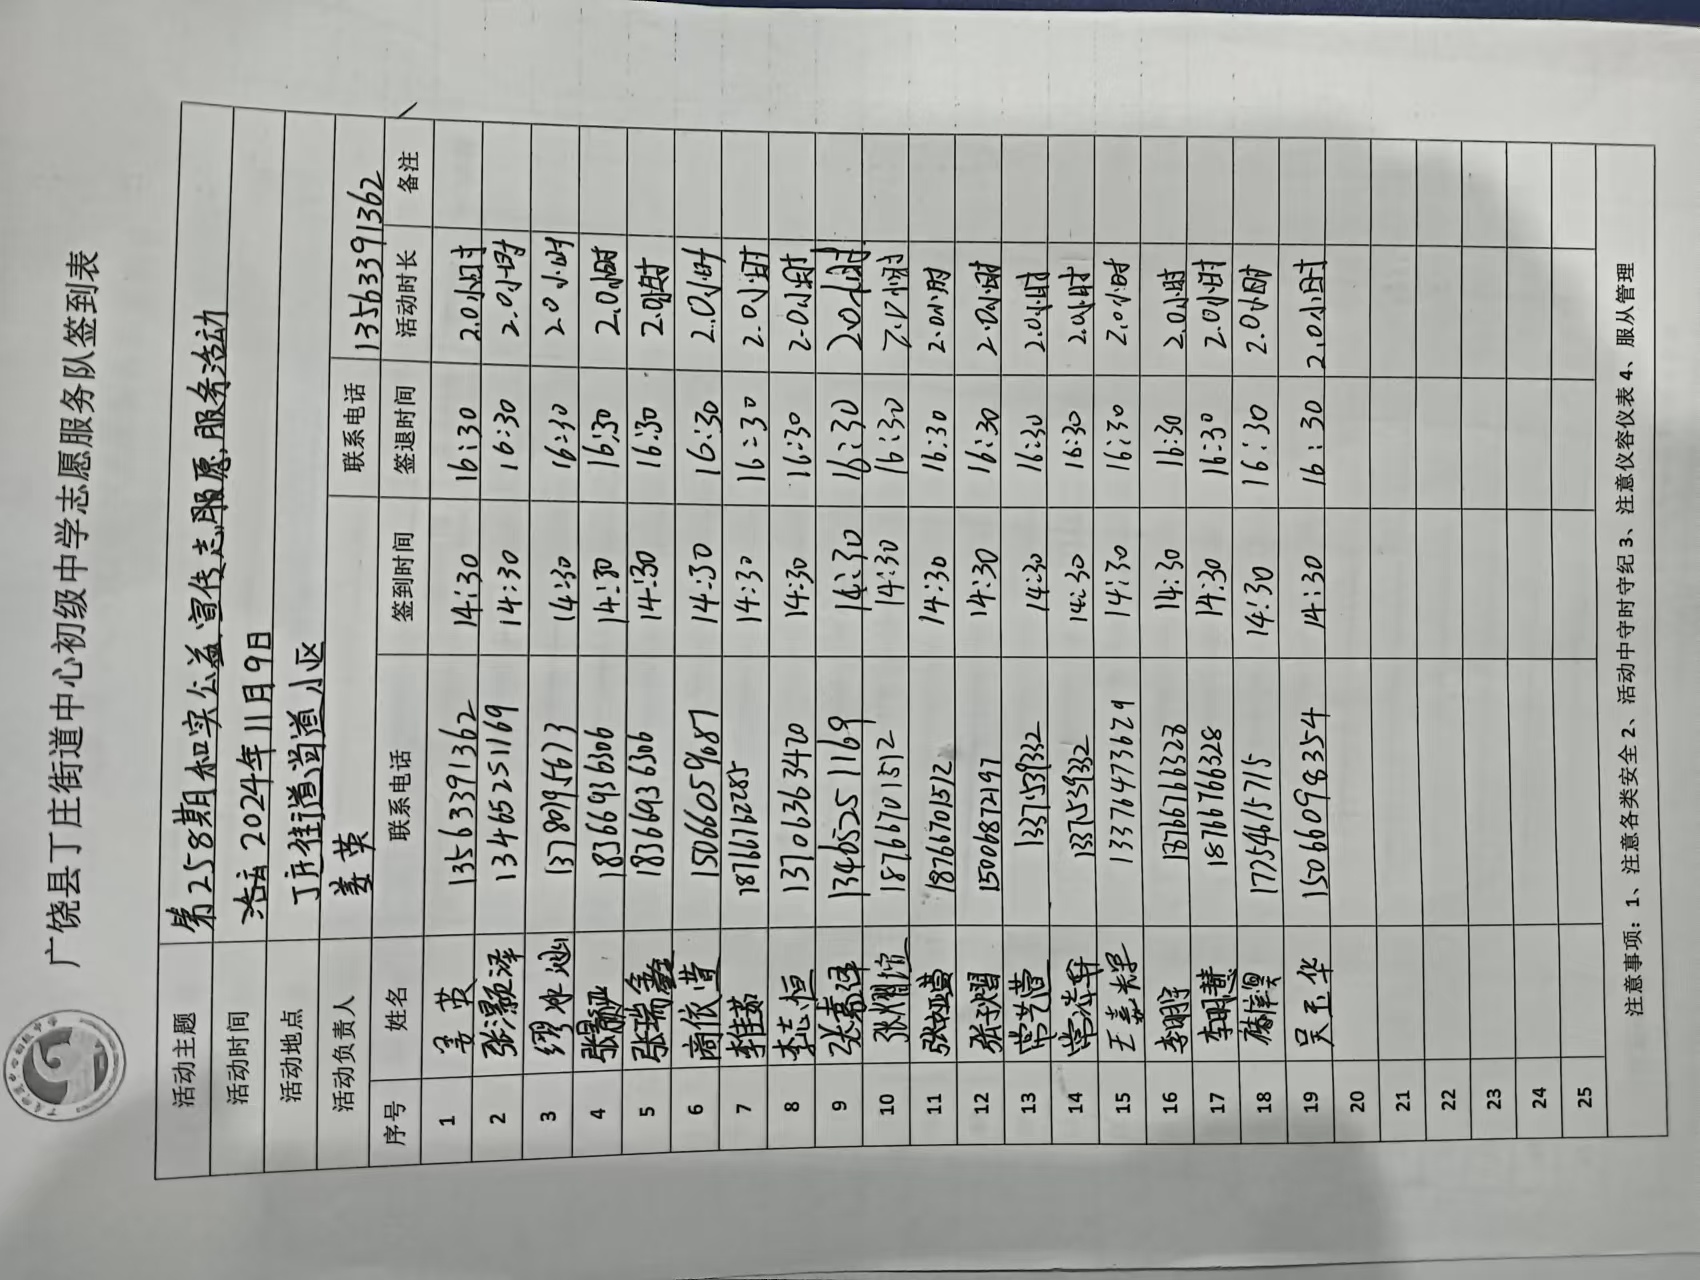 广饶县丁庄街道中心初级中学志愿服务队签到表
活动主题 第258期和实公益宣传志愿服务活动
活动时间 2024年11月9日
活动地点 丁庄街道尚道小区
活动负责人 姜英 联系电话 13563391362
序号 姓名 联系电话 签到时间 签退时间 活动时长 备注
1 姜英 13563391362 14:30 16:30 2.0小时
2 张灏泽 13465251169 14:30 16:30 2.0小时
3 缪冰灿 13780795673 14:30 16:30 2.0小时
4 18366936306 14:30 16:30 2.0小时
5 张瑞鑫 18366936306 14:30 16:30 2.0小时
6 尚依萱 15066059687 14:30 16:30 2.0小时
7 李佳茹 18766762285 14:30 16:30 2.0小时
8 李志恒 13706363470 14:30 16:30 2.0小时
9 张嘉泽 13465251169 14:30 16:30 2.0小时
10 18766701512 14:30 16:30 2.0小时
11 18766701512 14:30 16:30 2.0小时
12 张子熠 15006872197 14:30 16:30 2.0小时
13 常艺萱 13375539332 14:30 16:30 2.0小时
14 13375539332 14:30 16:30 2.0小时
15 王嘉 13376473629 14:30 16:30 2.0小时
16 李明宇 18766766328 14:30 16:30 2.0小时
17 李明慧 18766766328 14:30 16:30 2.0小时
18 17754615715 14:30 16:30 2.0小时
19 吴玉华 15066098354 14:30 16:30 2.0小时
20
21
22
23
24
25
注意事项：1、注意各类安全 2、活动中守时守纪 3、注意仪容仪表 4、服从管理